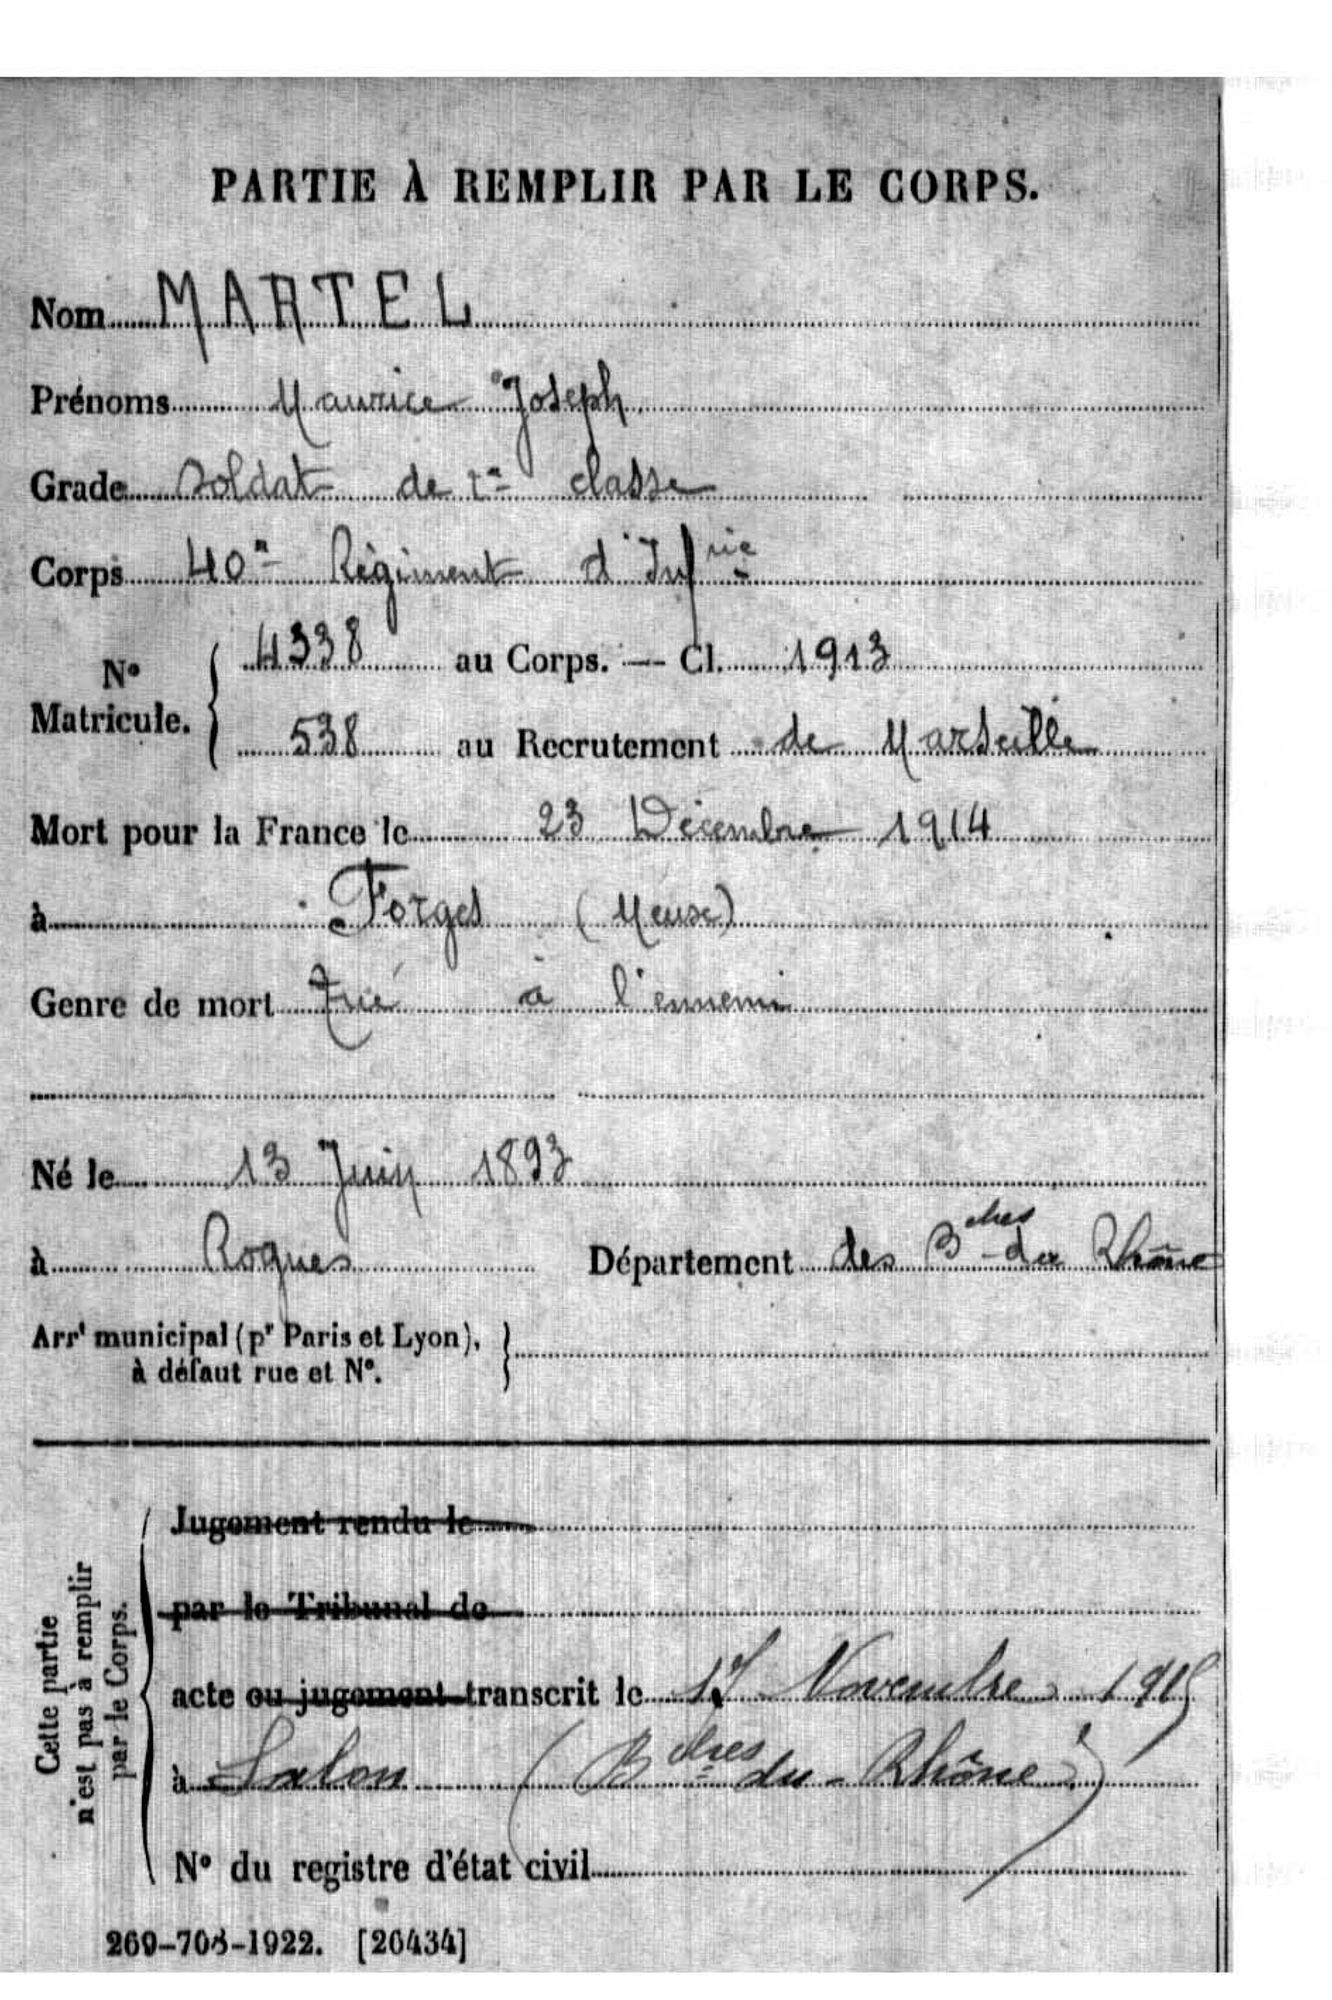 PARTIE À REMPLIR PAR LE CORPS.
Nom MARTEL
Prénoms Maurice Joseph
Grade Soldat de 2e classe
Corps 40e Régiment d'Infrie
No Matricule. { 4338 au Corps. — Cl. 1913
538 au Recrutement de Marseille
Mort pour la France le 23 Décembre 1914
à Forges (Meuse)
Genre de mort Tué à l'ennemi
Né le 13 Juin 1893
à Rognes Département des Bches du Rhône
Arrt municipal (pr Paris et Lyon),
à défaut rue et No.
Cette partie
n'est pas à remplir
par le Corps.
Jugement rendu le
par le Tribunal de
acte ou jugement transcrit le 17 Novembre 1915
à Salon (Bches du-Rhône)
No du registre d'état civil
269-708-1922. [26434]